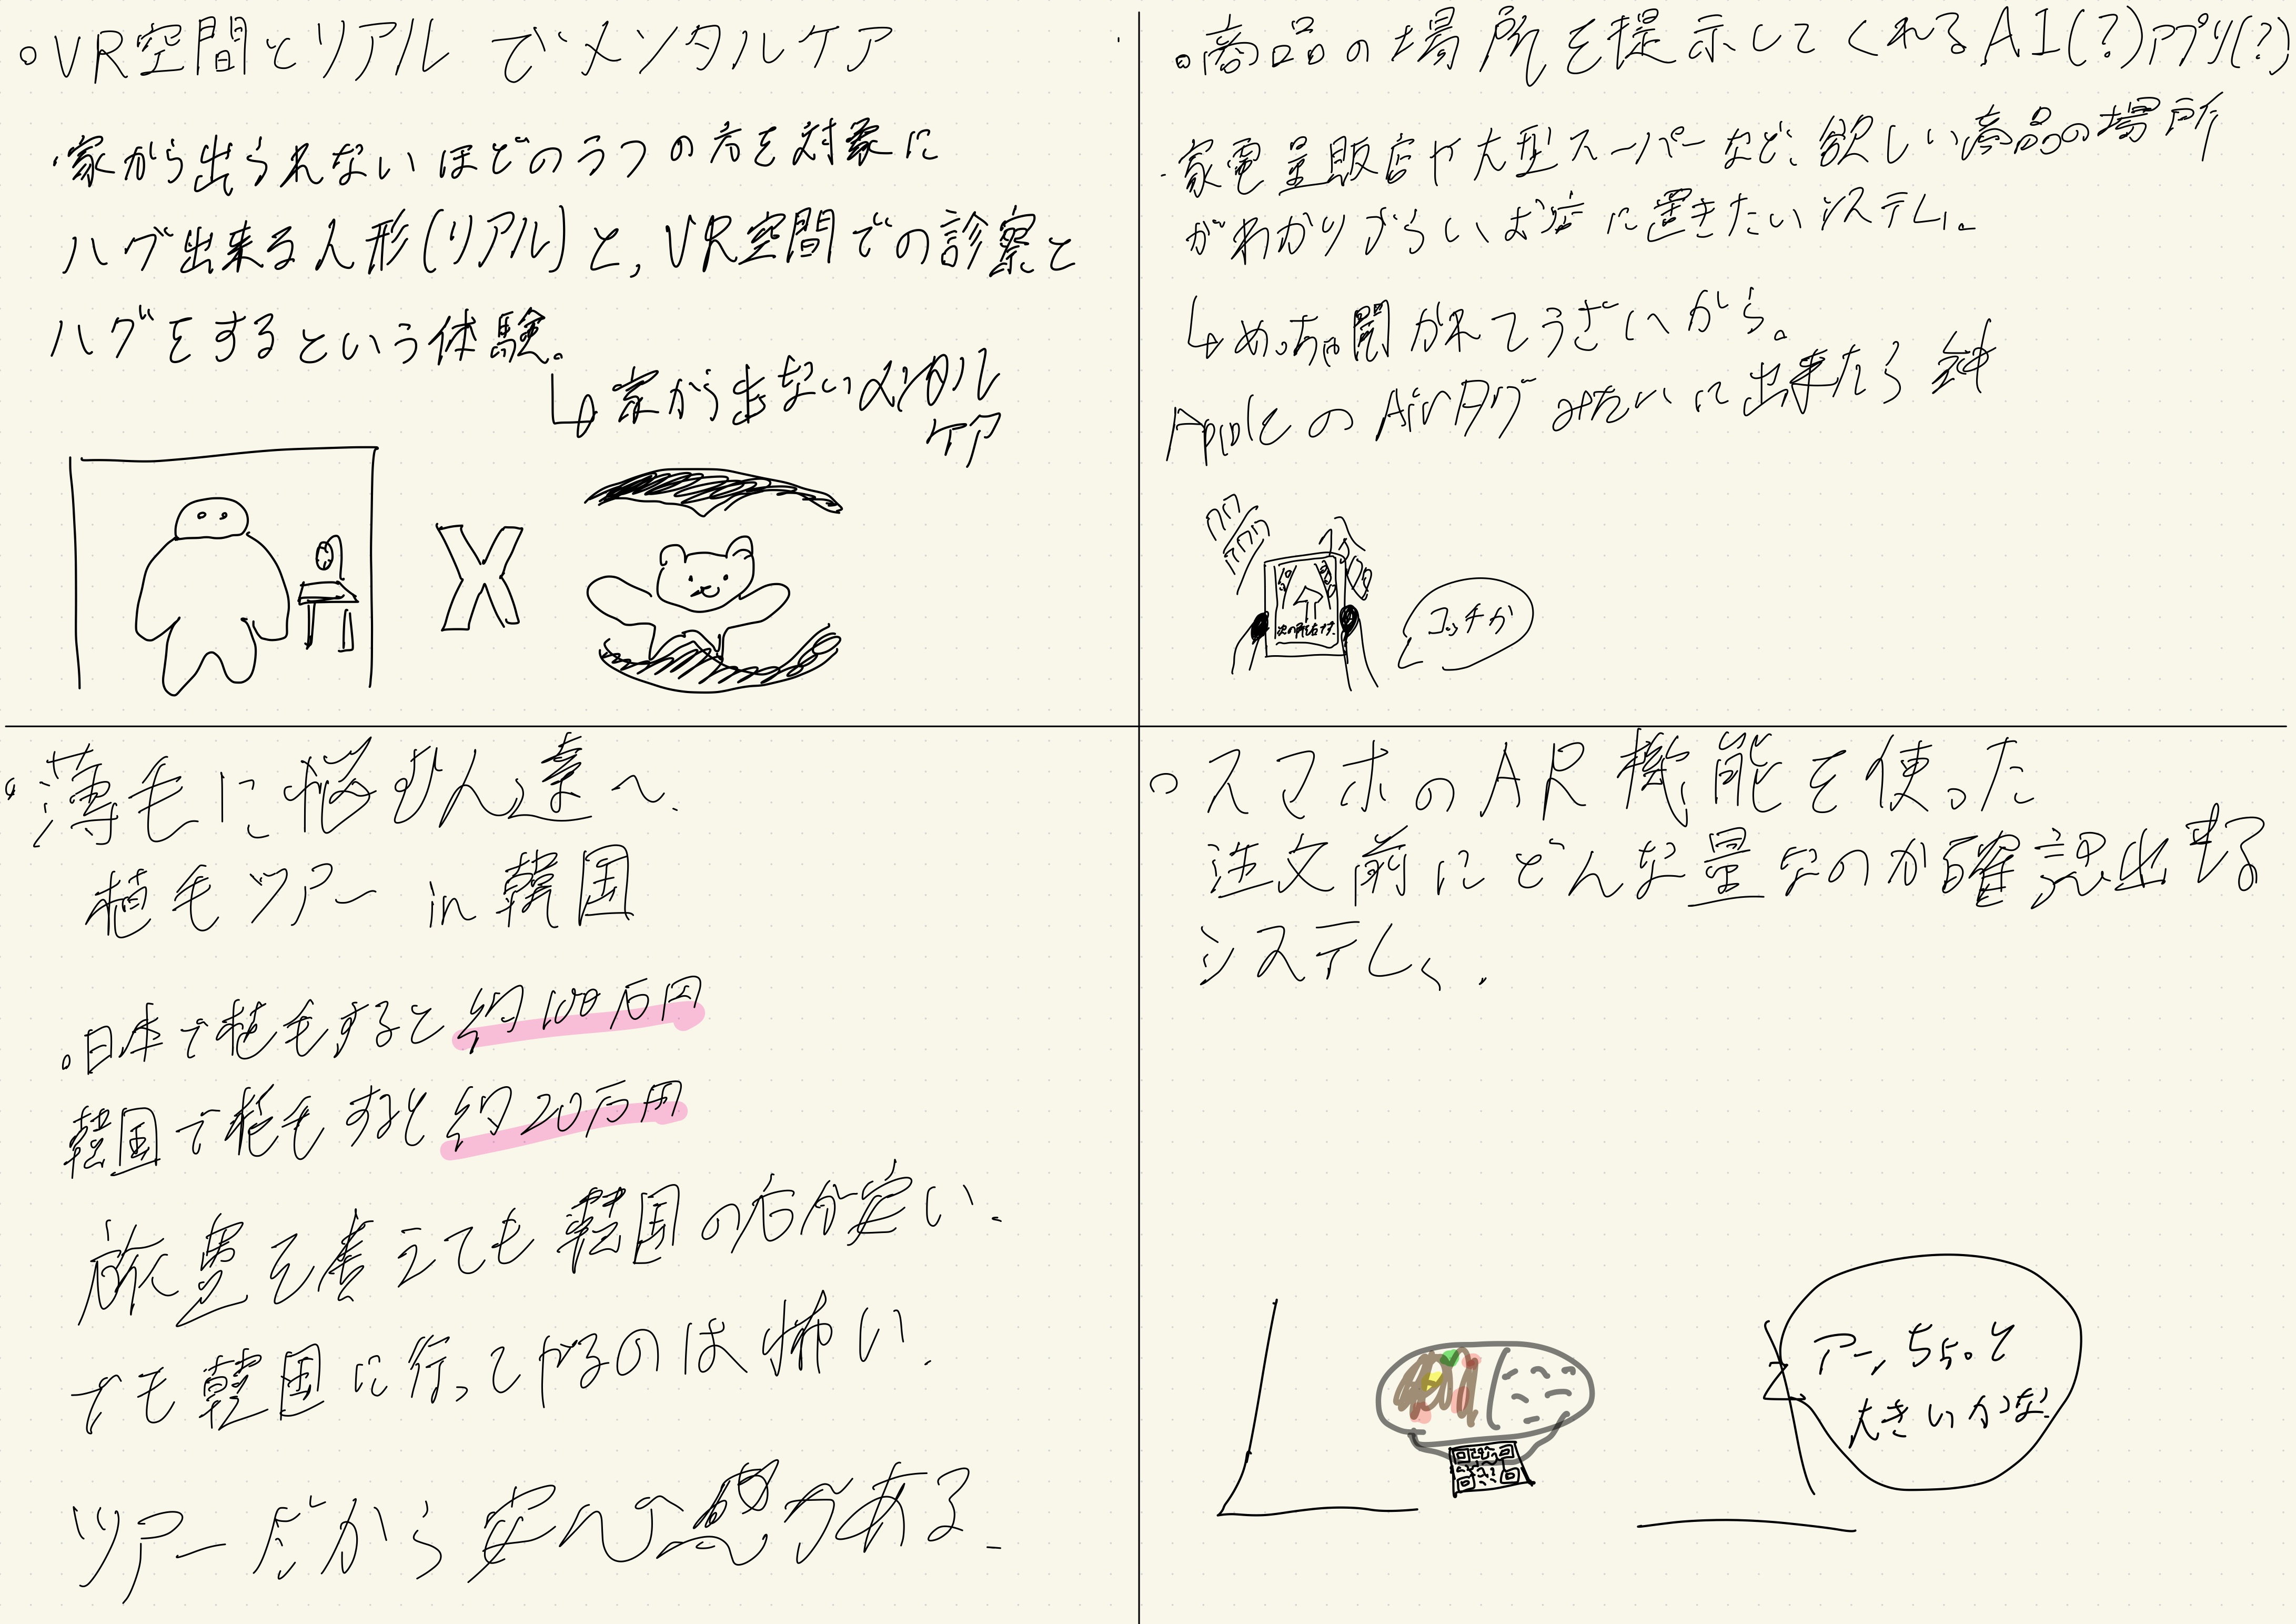 ○VR空間とリアル でメンタルケア
・家から出られないほどのうつの方を対象に
ハグ出来る人形(リアル)と,VR空間での診察と
ハグをするという体験。
↳家から出ないメンタル
ケア
X
。商品の場所を提示してくれるAI(?)アプリ(?)
・家電量販店や大型スーパーなど、欲しい商品の場所
がわかりづらいお店に置きたいシステム。
↳めっちゃ聞かれてうざいから。
AppleのAirタグみたいに出来たら神
コッチか
。薄毛に悩む人達へ.
植毛ツアー in 韓国
。日本で植毛すると約100万円
韓国で植毛すると約20万円
旅費を考えても韓国の方が安い.
でも韓国に行ってやるのは怖い.
ツアーだから安心感がある.
○スマホのAR機能を使った
注文前にどんな量なのか確認出来る
システム.
アー,ちょっと
大きいかな